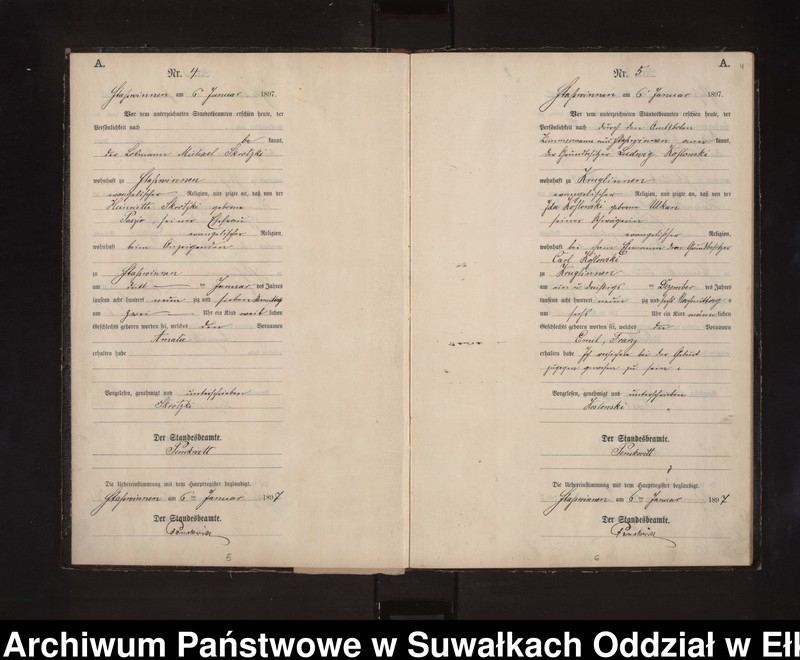 A.
Nr. 4
Staßwinnen am 6 Januar 1897.
Vor dem unterzeichneten Standesbeamten erschien heute, der
Persönlichkeit nach
be kannt,
der Losmann Michael Skrotzki
wohnhaft zu Staßwinnen
evangelischer Religion, und zeigte an, daß von der
Henriette Skrotzki geborene
seiner Ehefrau
evangelischer Religion,
wohnhaft beim Anzeigenden
zu Staßwinnen
am Januar des Jahres
tausend acht hundert neun zig und sieben
um zwei Uhr ein Kind weib lichen
Geschlechts geboren worden sei, welches den Vornamen
Amalie
erhalten habe
Vorgelesen, genehmigt und unterschrieben
Skrotzki
Der Standesbeamte.
Die Uebereinstimmung mit dem Hauptregister beglaubigt.
Staßwinnen am 6ten Januar 1897
Der Standesbeamte.
5
A.
4
Nr. 5
Staßwinnen am 6 Januar 1897.
Vor dem unterzeichneten Standesbeamten erschien heute, der
Persönlichkeit nach durch den Amtsboten
Zimmermann aus Staßwinnen aner kannt,
der Grundbesitzer Ludwig Koslowski
wohnhaft zu Kruglinnen
evangelischer Religion, und zeigte an, daß von der
Ida Koslowski geborene
seiner Schwägerin
evangelischer Religion,
wohnhaft bei ihrem Ehemann dem Grundbesitzer
Carl Koslowski
zu Kruglinnen
am ein u dreißigs ten Dezember des Jahres
tausend acht hundert neun zig und sechs Vormittags
um sechs Uhr ein Kind männ lichen
Geschlechts geboren worden sei, welches die Vornamen
Emil, Franz
erhalten habe Ich versichere bei der Geburt
zugegen gewesen zu sein.
Vorgelesen, genehmigt und unterschrieben
Koslowski
Der Standesbeamte.
Die Uebereinstimmung mit dem Hauptregister beglaubigt.
Staßwinnen am 6ten Januar 1897
Der Standesbeamte.
6
Archiwum Państwowe w Suwałkach Oddział w Ełk